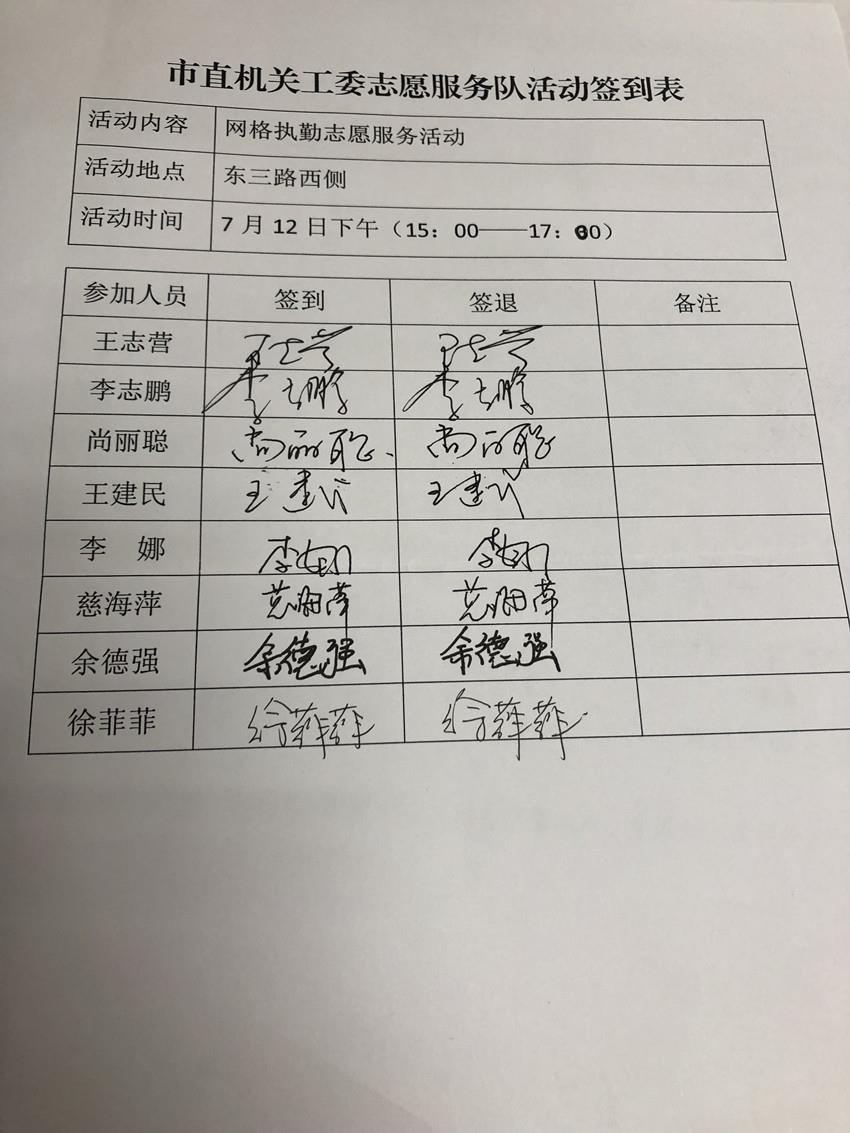 市直机关工委志愿服务队活动签到表
活动内容 网格执勤志愿服务活动
活动地点 东三路西侧
活动时间 7月12日下午（15：00——17：00）
参加人员 签到 签退 备注
王志营 王志营 王志营
李志鹏 李志鹏 李志鹏
尚丽聪 尚丽聪 尚丽聪
王建民 王建民 王建民
李 娜 李娜 李娜
慈海萍 慈海萍 慈海萍
余德强 余德强 余德强
徐菲菲 徐菲菲 徐菲菲